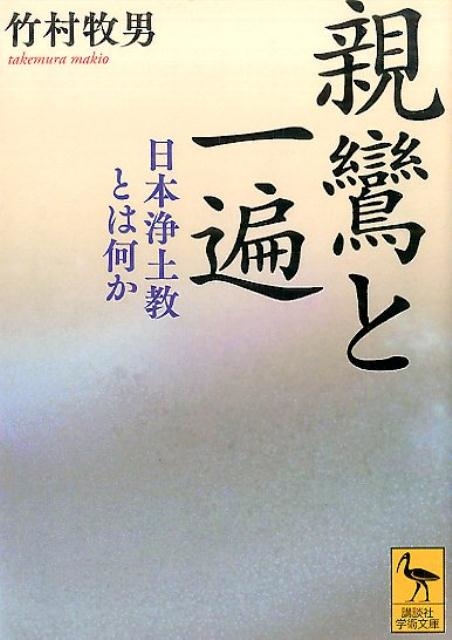 竹村牧男
takemura makio
親鸞と
一遍
日本浄土教
とは何か
講談社
学術文庫